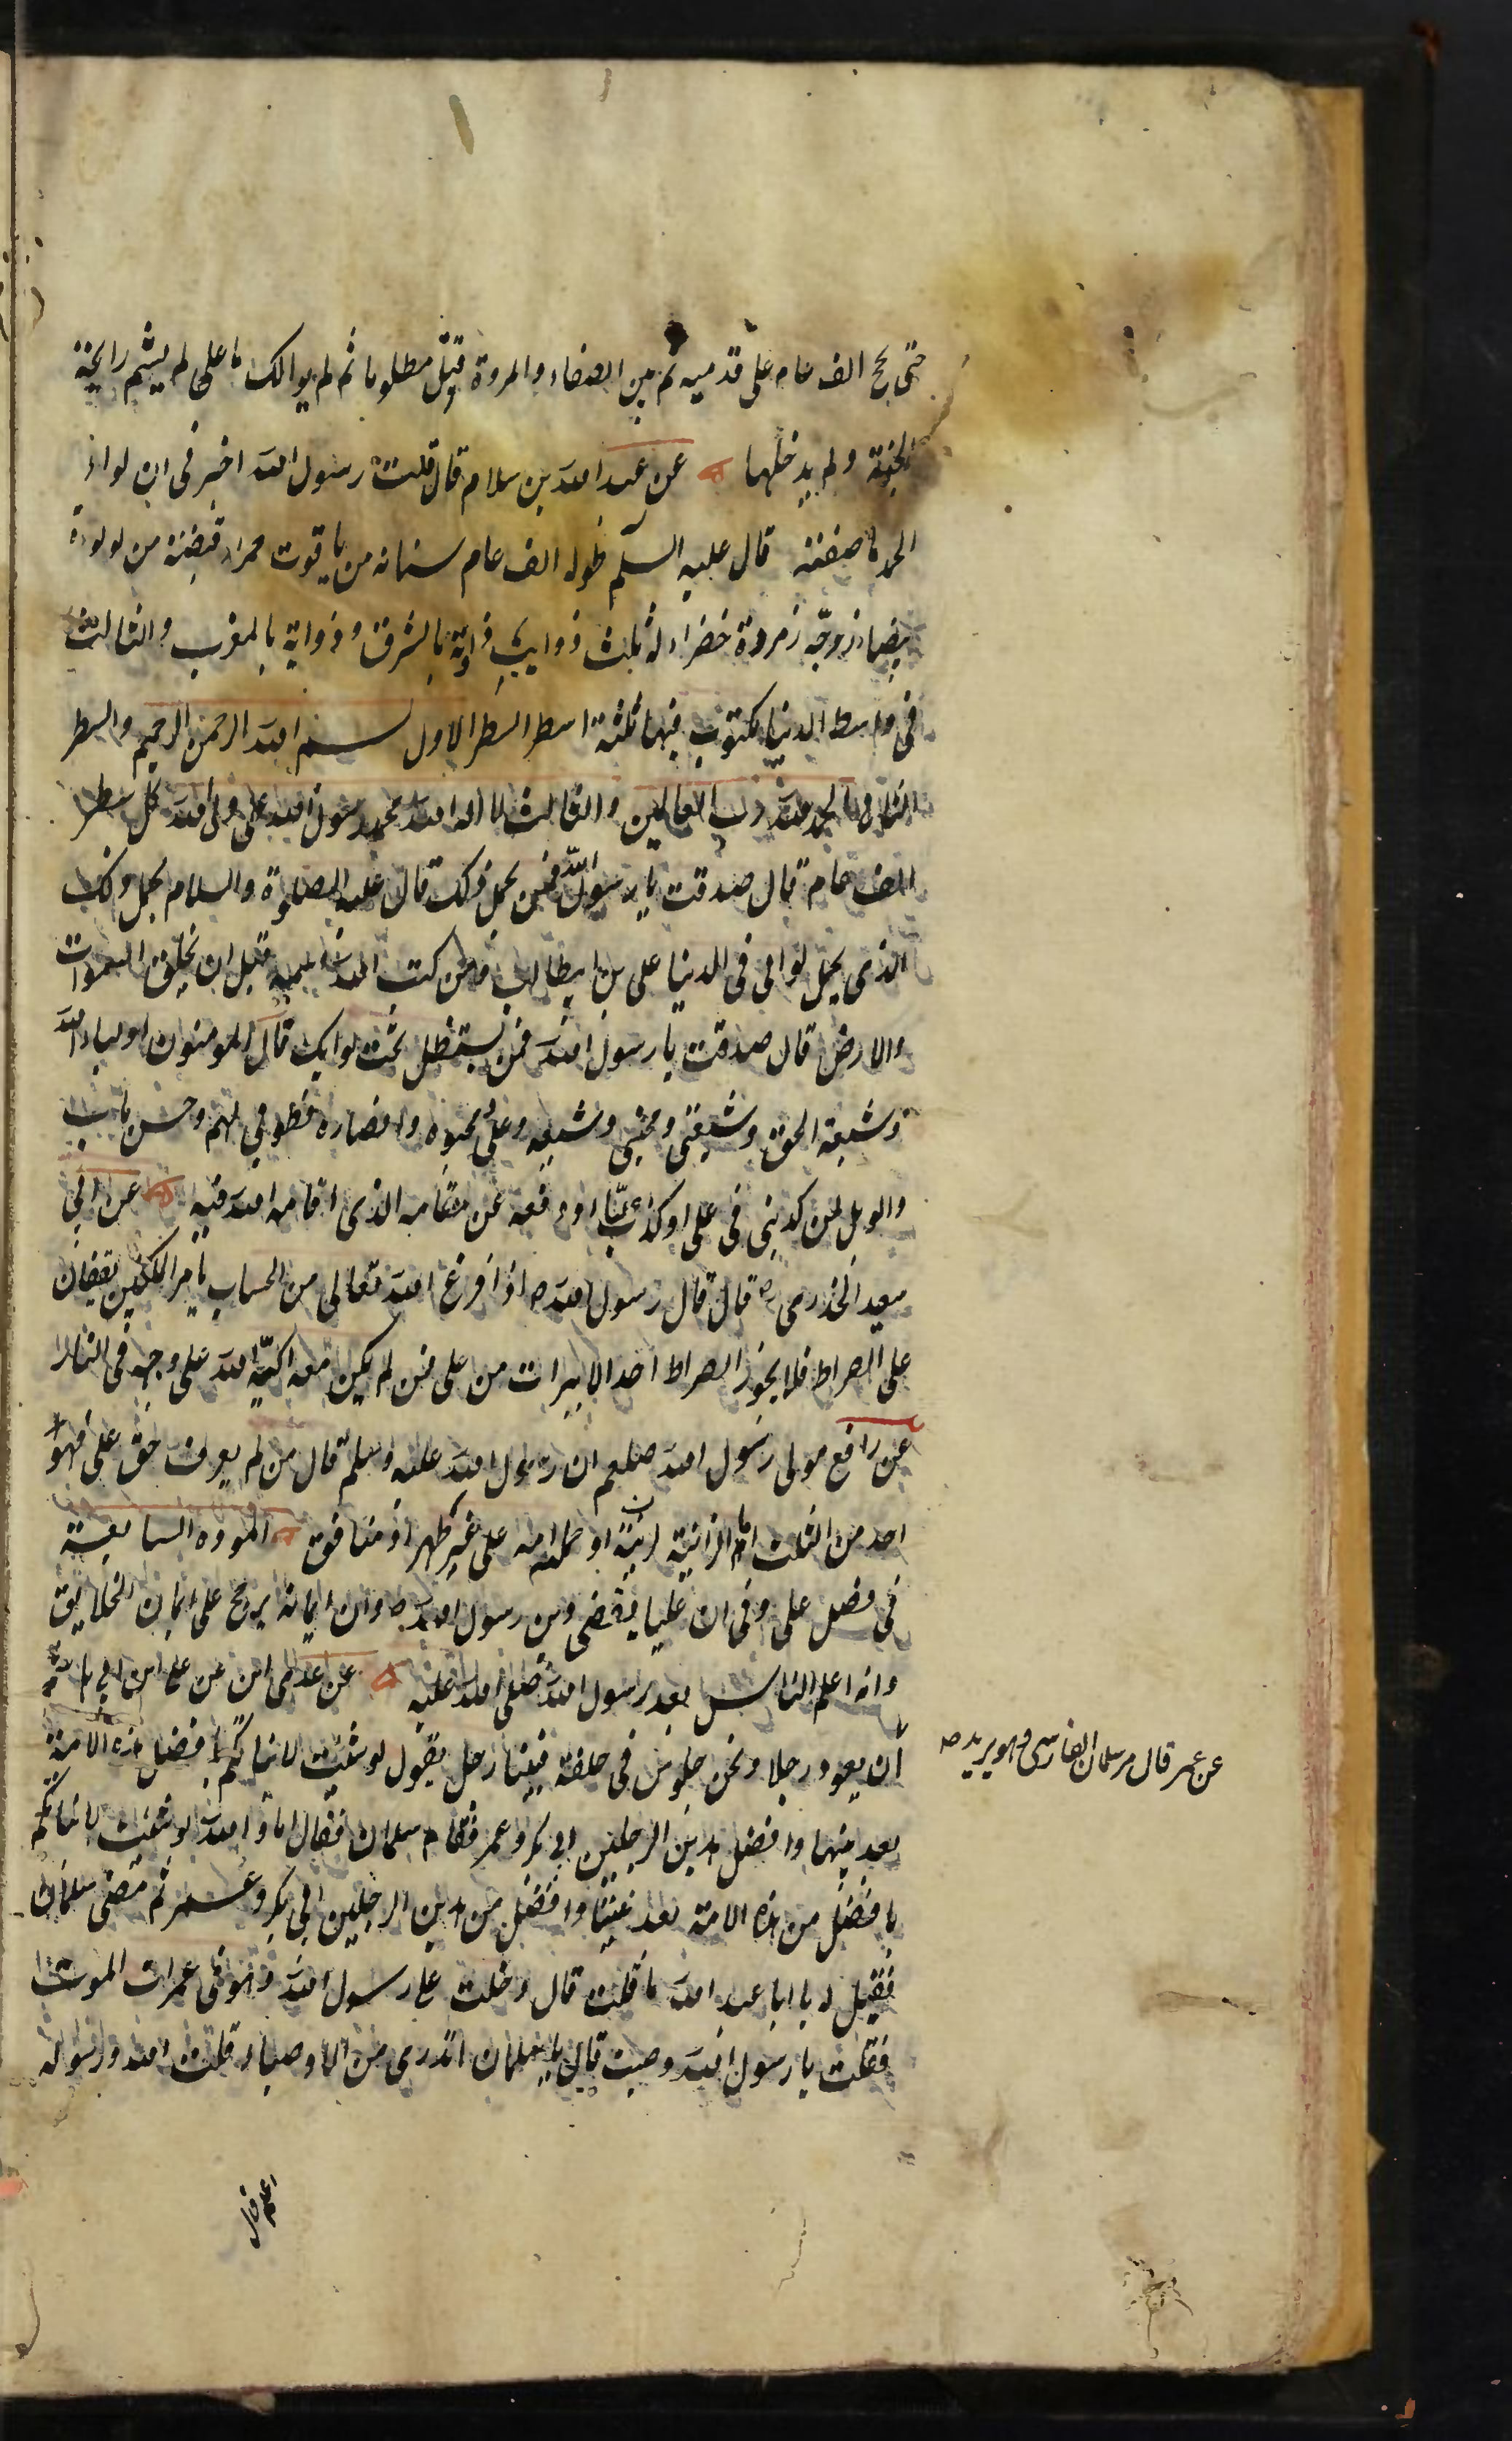 حتى حج الف عام على قدميه ثم بين الصفاء والمروة قتل مظلوما ثم لم يوالك يا على لم يشم رايحة
الجنة ولم يدخلها عن عبد الله بن سلام قال قلت رسول الله اخبرنى ان لواء
الحمد ما صفته قال عليه السلم طوله الف عام سنانه من ياقوت حمراء قبضته من لولوة
بيضاء زوجّه زمردة خضراء له ثلث ذوايب ذواية بالمشرق وذواية بالمغرب والثالث
فى واسط الدنيا مكتوب فيها ثلثة اسطر السطر الاول بسم الله الرحمن الرحيم والسطر
الثانى الحمد لله رب العالمين والثالث لا اله الله محمد رسول الله على ولى الله كل سطر
الف عام قال صدقت يا رسول الله فمن يحمل ذلك قال عليه الصلوة والسلام يحمل ذلك
الذى يحمل لوائى فى الدنيا على بن ابيطالب ومن كتب الله اسمه قبل ان يخلق السموات
والارض قال صدقت يا رسول الله فمن يستظل تحت لوايك قال المومنون اولياء الله
وشيعة الحق وشيعتى ومحبى وشيعه وعلى محبوه وانصاره فطوبى لهم وحسن ماب
والويل لمن كذبنى فى على او كذب عليا او دفعه عن مقامه الذى اقامه الله فيه عن ابى
سعيد الخدرى قال قال رسول الله ص اذا فرغ الله تعالى من الحساب يامر الملكين يقفان
على الصراط فلا يجوز الصراط احد الا ببرات من على فمن لم يكن معه اكبّه الله على وجهه فى النار
عن رافع مولى رسول الله صلعم ان رسول الله عليه وسلم قال من لم يعرف حق على فهو
احد من الثلث اما الزانية او حملته امه على غير طهر او منافق المودة السابعة
فى فضل على وفى ان عليا يقضى دين رسول الله ص وان ايمانه يرجح على ايمان الخلايق
وانه اعلم الناس بعد رسول الله صلى الله عليه عن عدى ابن عن على ابن ابى
عن عمر قال مر سلمان الفارسى وهو يريد ص
ان يعود رجلا ونحن جلوس فى حلقة فينا رجل يقول لو شئت لانباتكم بافضل هذه الامة
بعد نبيها وافضل هذين الرجلين ابى بكر وعمر فقام سلمان فقال اما والله لو شئت لانباتكم
بافضل من هذه الامة بعد نبينا وافضل من هذين الرجلين ابى بكر وعمر ثم مضى سلمان
فقيل له يا ابا عبد الله ما قلت قال دخلت على رسول الله وهو فى غمرات الموت
فقلت يا رسول الله وصيت قال يا سلمان اتدرى من الاوصياء قلت الله ورسوله
اعلم قال